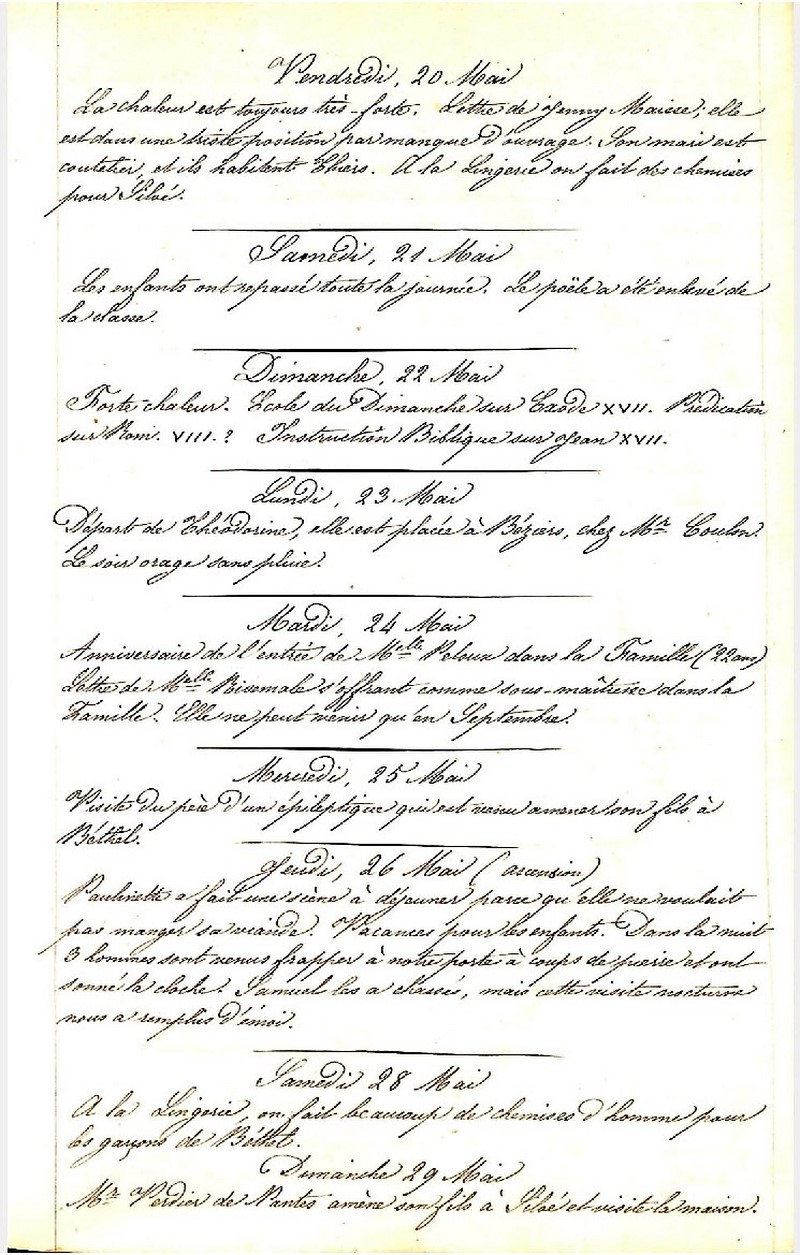 Vendredi, 20 Mai
La chaleur est toujours très-forte. Lettre de Jenny Maisse; elle
est dans une triste position par manque d'ouvrage. Son mari est
coutelier, et ils habitent Thiers. A la Lingerie on fait des chemises
pour Siloé.
Samedi, 21 Mai
Les enfants ont repassé toute la journée. Le poële a été enlevé de
la classe.
Dimanche, 22 Mai
Forte chaleur. Ecole du Dimanche sur Exode XVII. Prédication
sur Rom. VIII. ? Instruction Biblique sur Jean XVII.
Lundi, 23 Mai
Départ de Théodorine, elle est placée à Béziers, chez Mr. Coulon.
Le soir orage sans pluie.
Mardi, 24 Mai
Anniversaire de l'entrée de Melle Peloux dans la Famille (22 ans)
Lettre de Melle Rivemale s'offrant comme sous-maîtresse dans la
Famille. Elle ne peut venir qu'en Septembre.
Mercredi, 25 Mai
Visite du père d'un épileptique qui est venu amener son fils à
Béthel.
Jeudi, 26 Mai (ascension)
Paulinette a fait une scène à déjeuner parce qu'elle ne voulait
pas manger sa viande. Vacances pour les enfants. Dans la nuit
3 hommes sont venus frapper à notre porte à coups de pierre et ont
sonné la cloche. Samuel les a chassés, mais cette visite nocturne
nous a remplis d'émoi.
Samedi 28 Mai
A la Lingerie, on fait beaucoup de chemises d'homme pour
les garçons de Béthel.
Dimanche 29 Mai
Mr Verdier de Nantes amène son fils à Siloé et visite la maison.